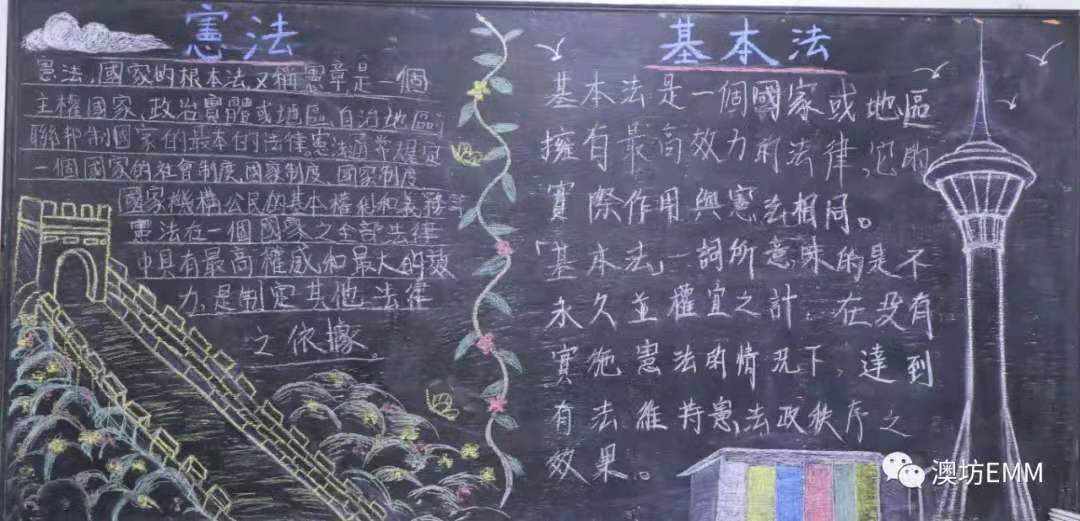 憲法
憲法,國家的根本法又稱憲章是一個
主權國家、政治實體或地區、自治地區
聯邦制國家的最本的法律憲法通常規定
一個國家的社會制度、國家制度、國家制度、
國家機構公民的基本權利和義務等
憲法在一個國家之全部法律
中具有最高權威和最大的效
力,是制定其他法律
之依據。
基本法
基本法是一個國家或地區
擁有最高效力的法律,它的
實際作用與憲法相同。
「基本法」一詞所意味的是不
永久並權宜之計,在沒有
實施憲法的情況下,達到
有法維持憲法政秩序之
效果。
澳坊EMM